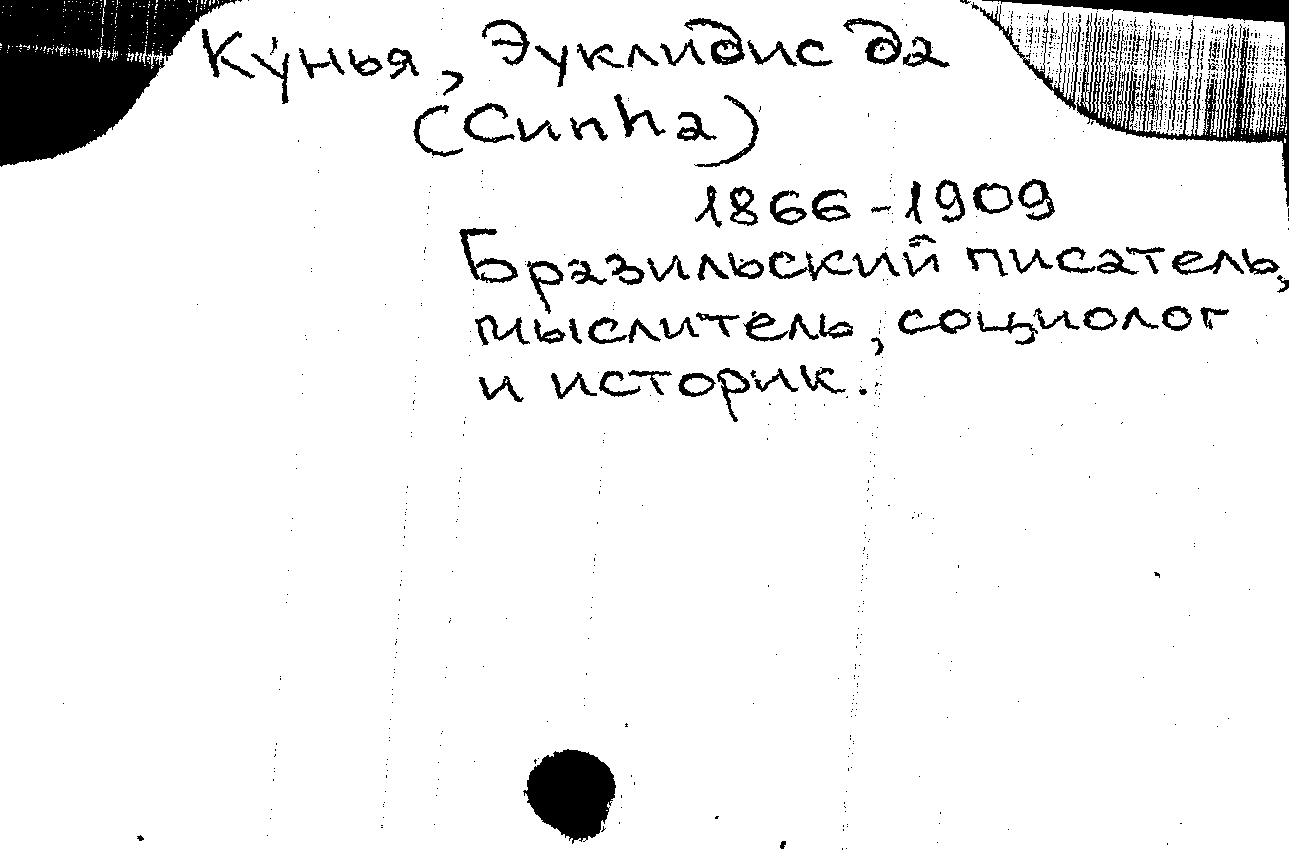 Ку́нья, Эуклидис да
(Cunha)
1866-1909
Бразильский писатель,
мыслитель, социолог
и историк.